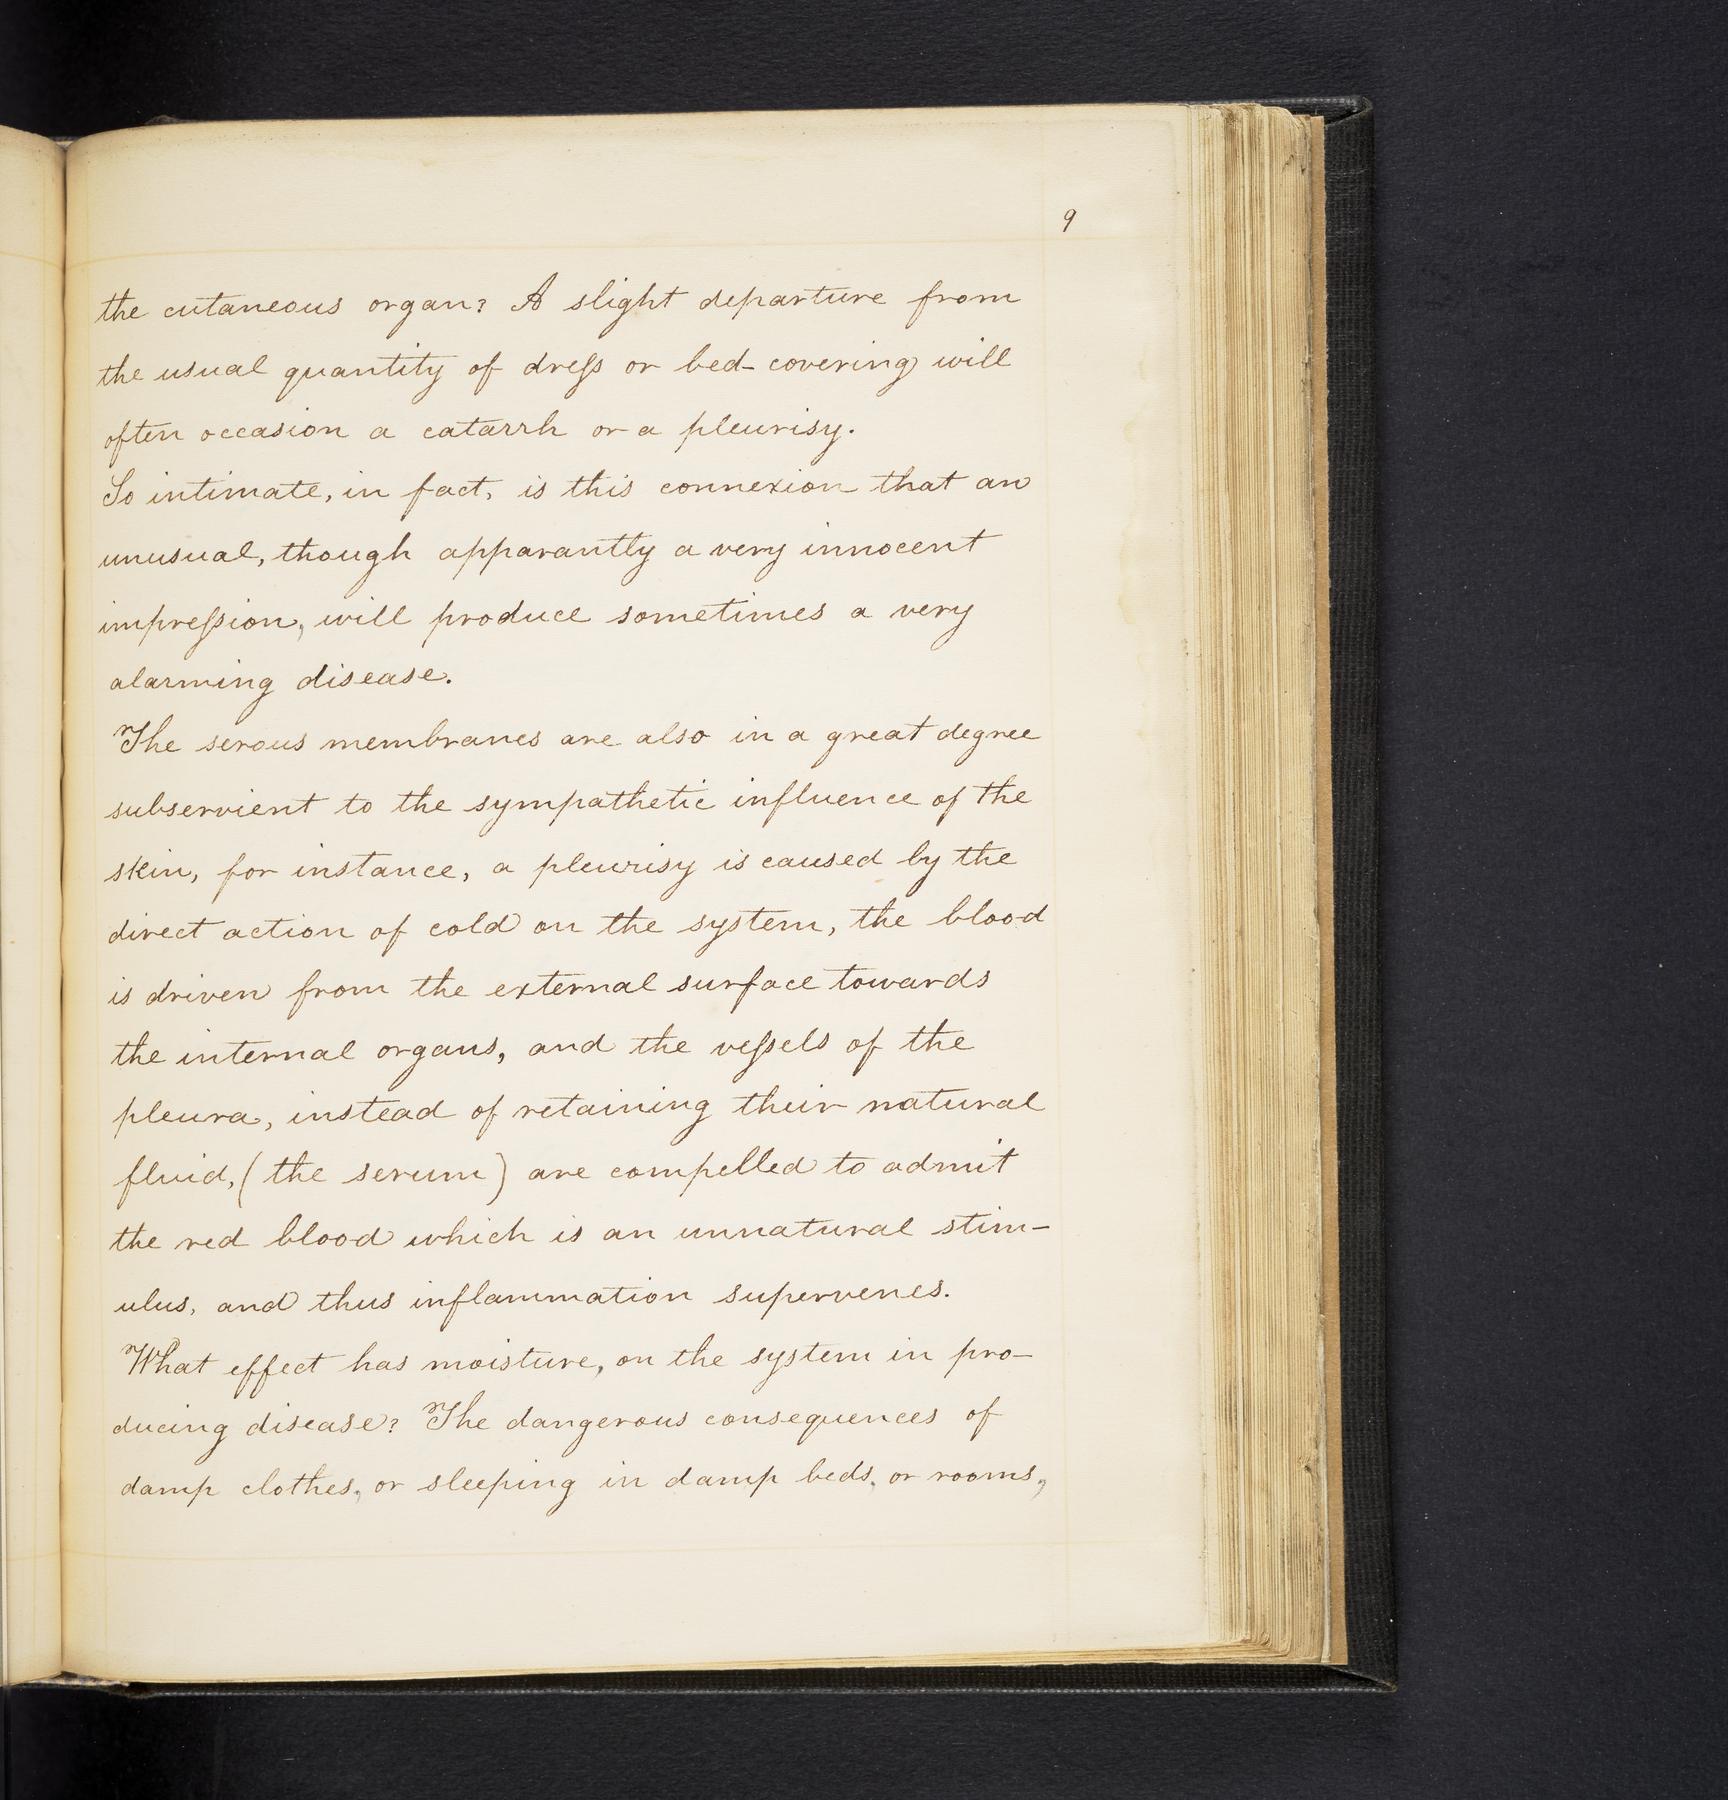 9
the cutaneous organ? A slight departure from
the usual quantity of dreſs or bed-covering will
often occasion a catarrh or a pleurisy.
So intimate, in fact, is this connexion that an
unusual, though apparantly a very innocent
impreſsion, will produce sometimes a very
alarming disease.
The serous membranes are also in a great degree
subservient to the sympathetic influence of the
skin, for instance, a pleurisy is caused by the
direct action of cold on the system, the blood
is driven from the external surface towards
the internal organs, and the veſsels of the
pleura, instead of retaining their natural
fluid, (the serum) are compelled to admit
the red blood which is an unnatural stim-
ulus, and thus inflammation supervenes.
What effect has moisture, on the system in pro-
ducing disease? The dangerous consequences of
damp clothes, or sleeping in damp beds, or rooms,